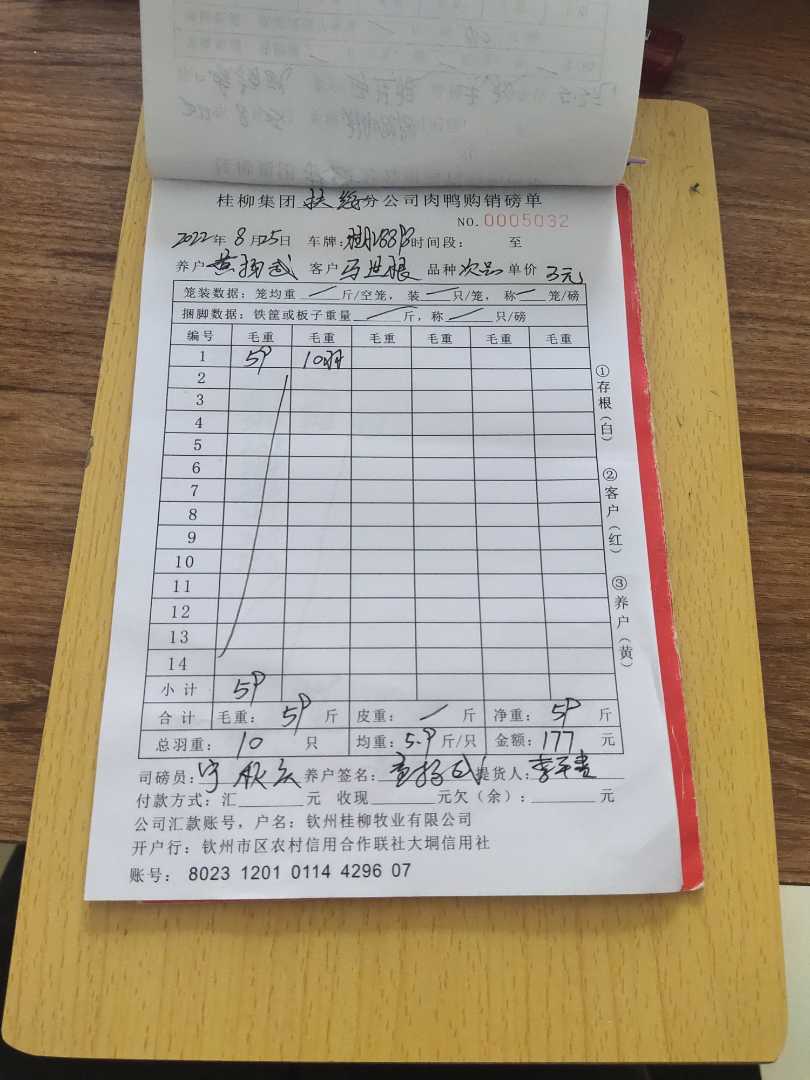 桂柳集团 扶绥 分公司肉鸭购销磅单
NO. 0005032
2022年 8月25日 车牌: 时间段: 至
养户 黄扬武 客户 马世根 品种 次品 单价 3元
笼装数据: 笼均重 / 斤/空笼, 装 / 只/笼, 称 / 笼/磅
捆脚数据: 铁筐或板子重量 / 斤, 称 / 只/磅
编号 毛重 毛重 毛重 毛重 毛重 毛重
1 59 10羽
2
3
4
5
6
7
8
9
10
11
12
13
14
小计 59
合计 毛重: 59 斤 皮重: / 斤 净重: 59 斤
总羽重: 10 只 均重: 5.9 斤/只 金额: 177 元
司磅员: 养户签名: 黄扬武 提货人:
付款方式: 汇 元 收现 元欠(余): 元
公司汇款账号, 户名: 钦州桂柳牧业有限公司
开户行: 钦州市区农村信用合作联社大垌信用社
账号: 8023 1201 0114 4296 07
①存根(白)
②客户(红)
③养户(黄)